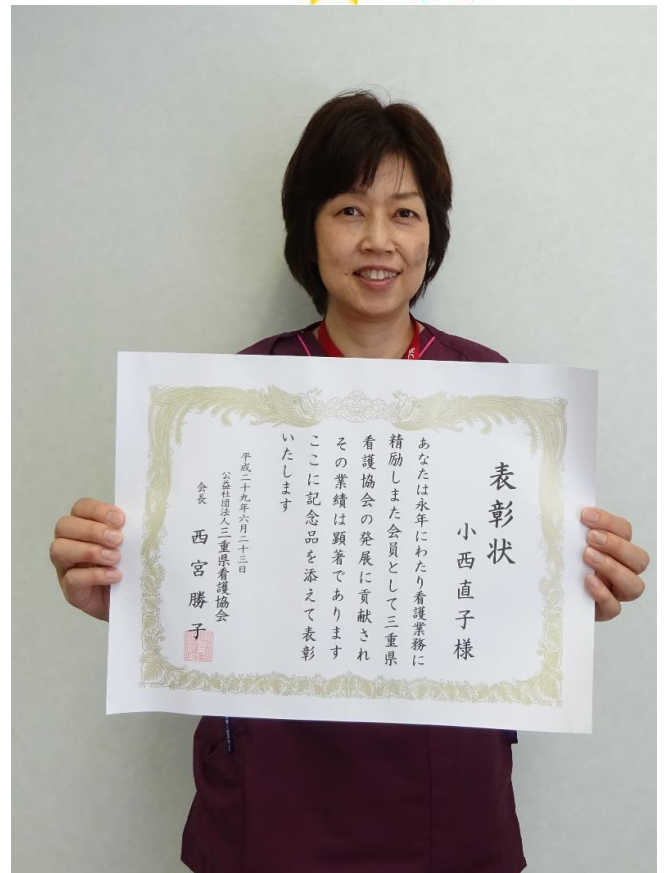 表彰状
小西直子様
あなたは永年にわたり看護業務に
精励しまた会員として三重県
看護協会の発展に貢献され
その業績は顕著であります
ここに記念品を添えて表彰
いたします
平成二十九年六月二十三日
公益社団法人三重県看護協会
会長 西宮勝子